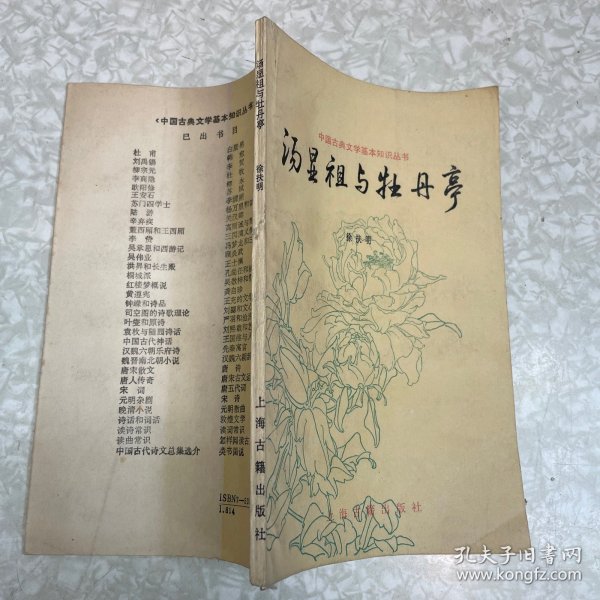 中国古典文学基本知识丛书
汤显祖与牡丹亭
徐扶明
上海古籍出版社
汤显祖与牡丹亭
徐扶明
上海古籍出版社
《中国古典文学基本知识丛书
已出书目
杜甫
刘禹锡
柳宗元
李商隐
欧阳修
王安石
苏门四学士
陆游
辛弃疾
董西厢和王西厢
李贽
吴承恩和西游记
吴伟业
洪昇和长生殿
桐城派
红楼梦概说
黄遵宪
钟嵘和诗品
司空图的诗歌理论
叶燮和原诗
袁枚与随园诗话
中国古代神话
汉魏六朝乐府诗
魏晋南北朝小说
唐宋散文
唐人传奇
宋词
元明杂剧
晚清小说
诗话和词话
读诗常识
读曲常识
中国古代诗文总集选介
唐诗
唐宋古文运
唐五代词
宋诗
元明散曲
敦煌文学
读词常识
怎样阅读古
类书简说
ISBN7-53
1.614
孔夫子旧书网
www.kongfz.com